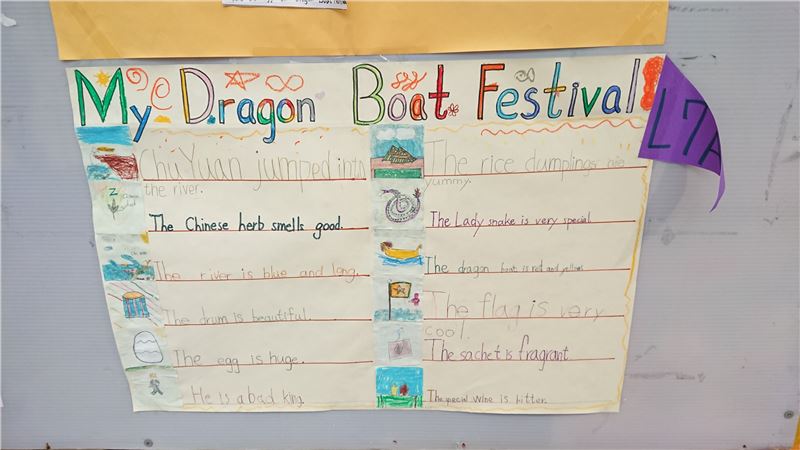 My Dragon Boat Festival!
L7A
Chu Yuan jumped into
the river.
The Chinese herb smells good.
The river is blue and long.
The drum is beautiful.
The egg is huge.
He is a bad king.
The rice dumplings are
yummy.
The Lady snake is very special.
The dragon boat is red and yellow.
The flag is very
cool.
The sachet is fragrant
The special wine is bitter.